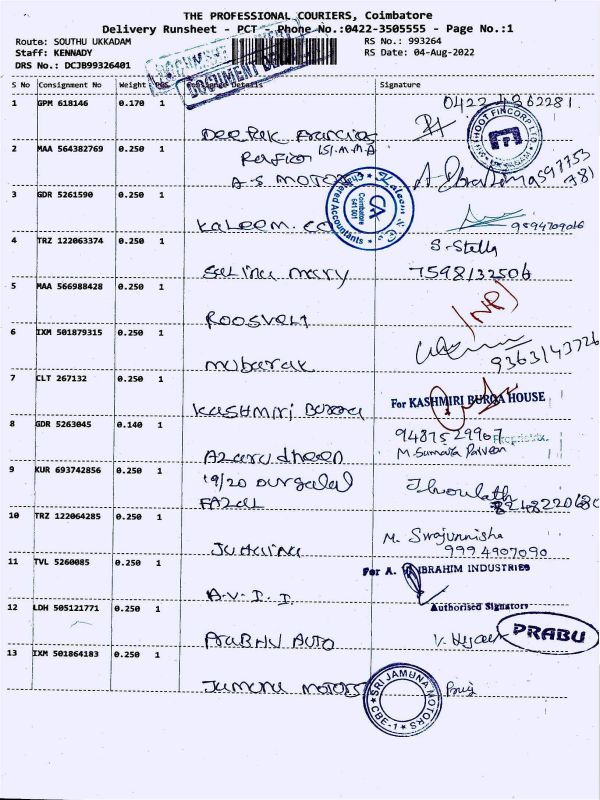 THE PROFESSIONAL COURIERS, Coimbatore
Delivery Runsheet - PCT - Phone No.:0422-3505555 - Page No.:1
Route: SOUTHU UKKADAM RS No.: 993264
Staff: KENNADY RS Date: 04-Aug-2022
DRS No.: DCJB99326401
S No Consignment No Weight Pcs Details Signature
1 GPM 618146 0.170 1 0422 4362281
Deepak
2 MAA 564382769 0.250 1
A-S MOTOR
3 GDR 5261590 0.250 1
Chartered Accountants Kaleem & Co
CA Coimbatore 641 001
Kaleem. CO 9894709016
4 TRZ 122063374 0.250 1 S. Stella
Salina Mary 7598132506
5 MAA 566988428 0.250 1 (NR)
Roosvelt
6 IXM 501879315 0.250 1
Mubarak 9363143726
7 CLT 267132 0.250 1 For KASHMIRI BURQA HOUSE
Kashmiri Burqa
8 GDR 5263045 0.140 1 9487529967 Proprietrix
Azarudheen M. Sumaya Parveen
9 KUR 693742856 0.250 1 19/20
FAZAL
10 TRZ 122064285 0.250 1 M. Swajunnisha
9994907090
11 TVL 5260085 0.250 1 For A. IBRAHIM INDUSTRIES
A.V.I.I. Authorised Signatory
12 LDH 505121771 0.250 1 PRABU
Prabhu Auto
13 IXM 501864183 0.250 1
Jamuna Motors SRI JAMUNA MOTORS CBE-1